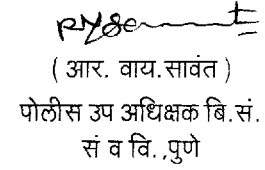 ( आर. वाय.सावंत )
पोलीस उप अधिक्षक बि.सं.
सं व वि.,पुणे